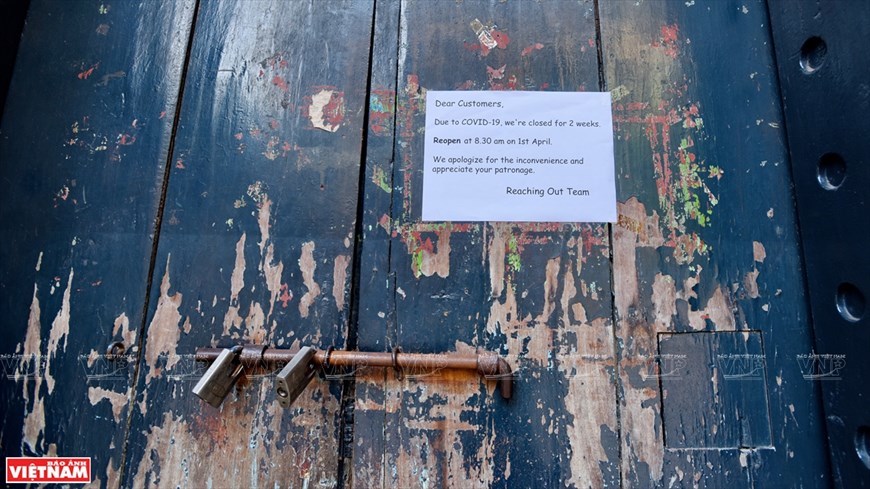 Dear Customers,
Due to COVID-19, we're closed for 2 weeks.
Reopen at 8.30 am on 1st April.
We apologize for the inconvenience and
appreciate your patronage.
Reaching Out Team
BÁO ẢNH
VIỆT NAM